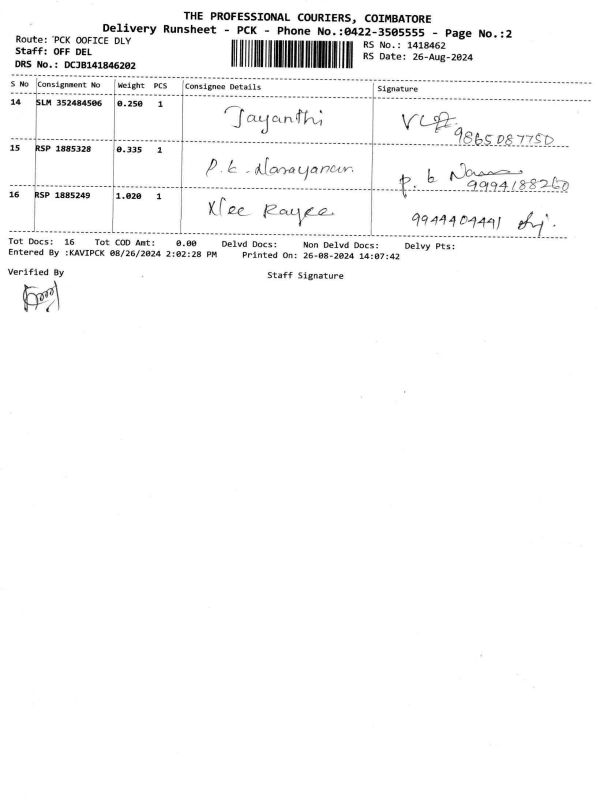 THE PROFESSIONAL COURIERS, COIMBATORE
Delivery Runsheet - PCK - Phone No.:0422-3505555 - Page No.:2
Route: PCK OOFICE DLY
RS No.: 1418462
Staff: OFF DEL
RS Date: 26-Aug-2024
DRS No.: DCJB141846202
S No Consignment No Weight PCS Consignee Details Signature
14 SLM 352484506 0.250 1 Jayanthi
9865087750
15 RSP 1885328 0.335 1 P.K. Narayanan
9994188260
16 RSP 1885249 1.020 1 9944404491
Tot Docs: 16 Tot COD Amt: 0.00 Delvd Docs: Non Delvd Docs: Delvy Pts:
Entered By :KAVIPCK 08/26/2024 2:02:28 PM Printed On: 26-08-2024 14:07:42
Verified By Staff Signature